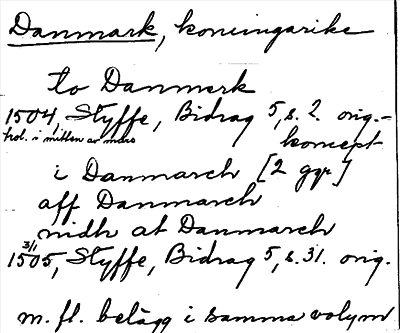 Danmark, konungarike
to Danmerk
1504, Styffe, Bidrag 5, s. 2. orig.-
trol. i mitten av mars
koncept
i Danmarch [2 ggr]
aff Danmarch
nidh at Danmarch
3/1
1505, Styffe, Bidrag 5, s. 31. orig.
m. fl. belägg i samma volym